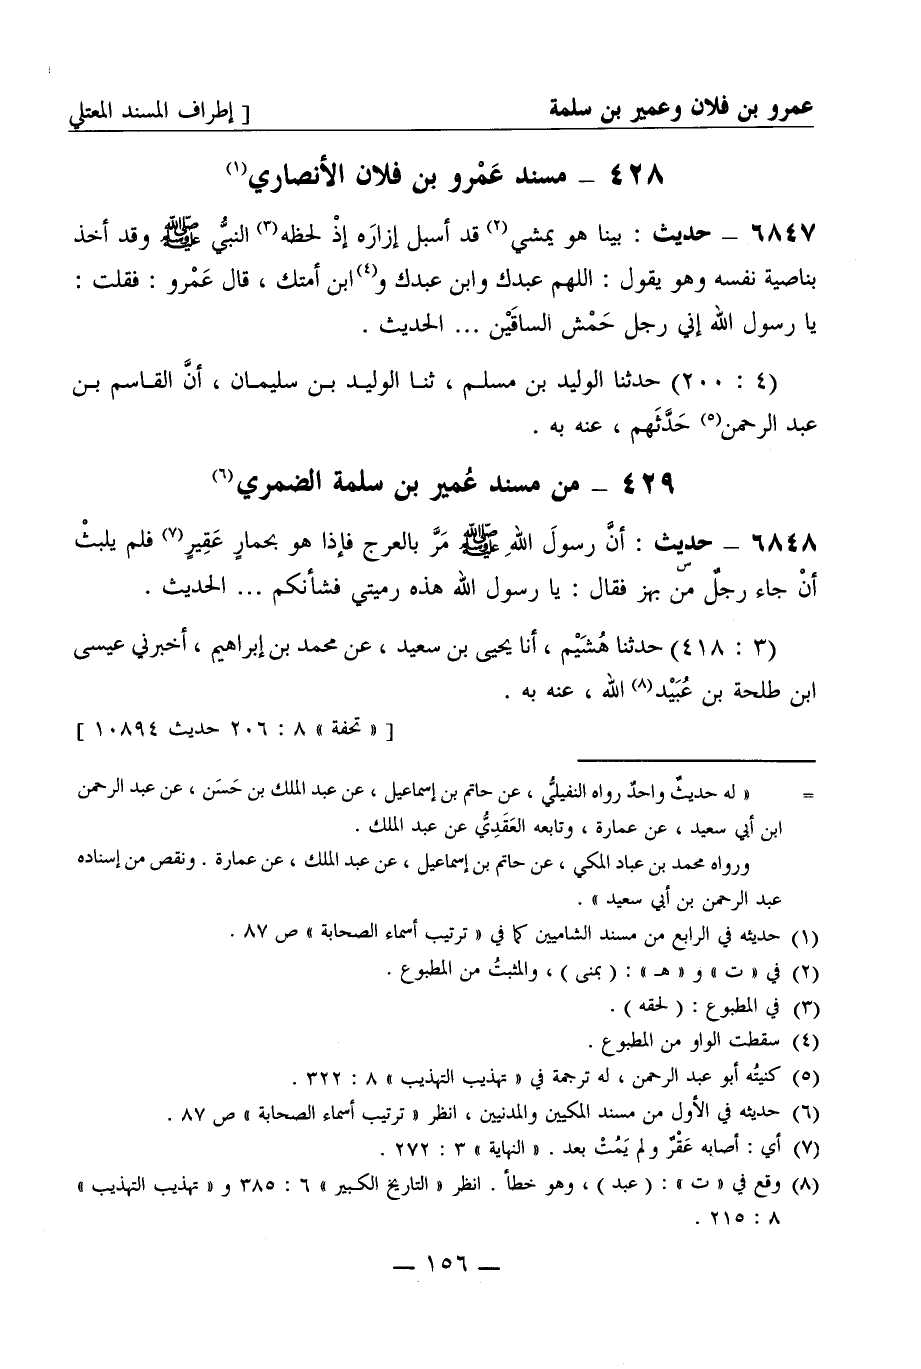 عمرو بن فلان وعمير بن سلمة [ إطراف المسند المعتلي
٤٢٨ ـ مسند عَمْرو بن فلان الأنصاري(١)
٦٨٤٧ ـ حديث : بينا هو يمشي(٢) قد أسبل إزارَه إذْ لحظه(٣) النبيُّ ﷺ وقد أخذ
بناصية نفسه وهو يقول : اللهم عبدك وابن عبدك و(٤)ابن أمتك ، قال عَمْرو : فقلت :
يا رسول الله إني رجل حَمْش الساقَيْن ... الحديث .
(٤ : ٢٠٠) حدثنا الوليد بن مسلم ، ثنا الوليد بن سليمان ، أنَّ القاسم بن
عبد الرحمن(٥) حَدَّثَهم ، عنه به .
٤٢٩ ـ من مسند عُمير بن سلمة الضمري(٦)
٦٨٤٨ ـ حديث : أنَّ رسولَ اللهِ ﷺ مَرَّ بالعرج فإذا هو بحمارٍ عَقِيرٍ(٧) فلم يلبثْ
أنْ جاء رجلٌ من بهز فقال : يا رسول الله هذه رميتي فشأنكم ... الحديث .
(٣ : ٤١٨) حدثنا هُشَيْم ، أنا يحيى بن سعيد ، عن محمد بن إبراهيم ، أخبرني عيسى
ابن طلحة بن عُبَيْد(٨) الله ، عنه به .
[ « تحفة » ٨ : ٢٠٦ حديث ١٠٨٩٤ ]
= « له حديثٌ واحدٌ رواه النفيليُّ ، عن حاتم بن إسماعيل ، عن عبد الملك بن حَسَن ، عن عبد الرحمن
ابن أبي سعيد ، عن عمارة ، وتابعه العَقَديُّ عن عبد الملك .
ورواه محمد بن عباد المكي ، عن حاتم بن إسماعيل ، عن عبد الملك ، عن عمارة . ونقص من إسناده
عبد الرحمن بن أبي سعيد » .
(١) حديثه في الرابع من مسند الشاميين كما في « ترتيب أسماء الصحابة » ص ٨٧ .
(٢) في « ت » و « هـ » : ( يمنى ) ، والمثبتُ من المطبوع .
(٣) في المطبوع : ( لحقه ) .
(٤) سقطت الواو من المطبوع .
(٥) كنيتُه أبو عبد الرحمن ، له ترجمة في « تهذيب التهذيب » ٨ : ٣٢٢ .
(٦) حديثه في الأول من مسند المكيين والمدنيين ، انظر « ترتيب أسماء الصحابة » ص ٨٧ .
(٧) أي : أصابه عَقْرٌ ولم يَمُتْ بعد . « النهاية » ٣ : ٢٧٢ .
(٨) وقع في « ت » : ( عبد ) ، وهو خطأ . انظر « التاريخ الكبير » ٦ : ٣٨٥ و « تهذيب التهذيب »
٨ : ٢١٥ .
ـ ١٥٦ ـ